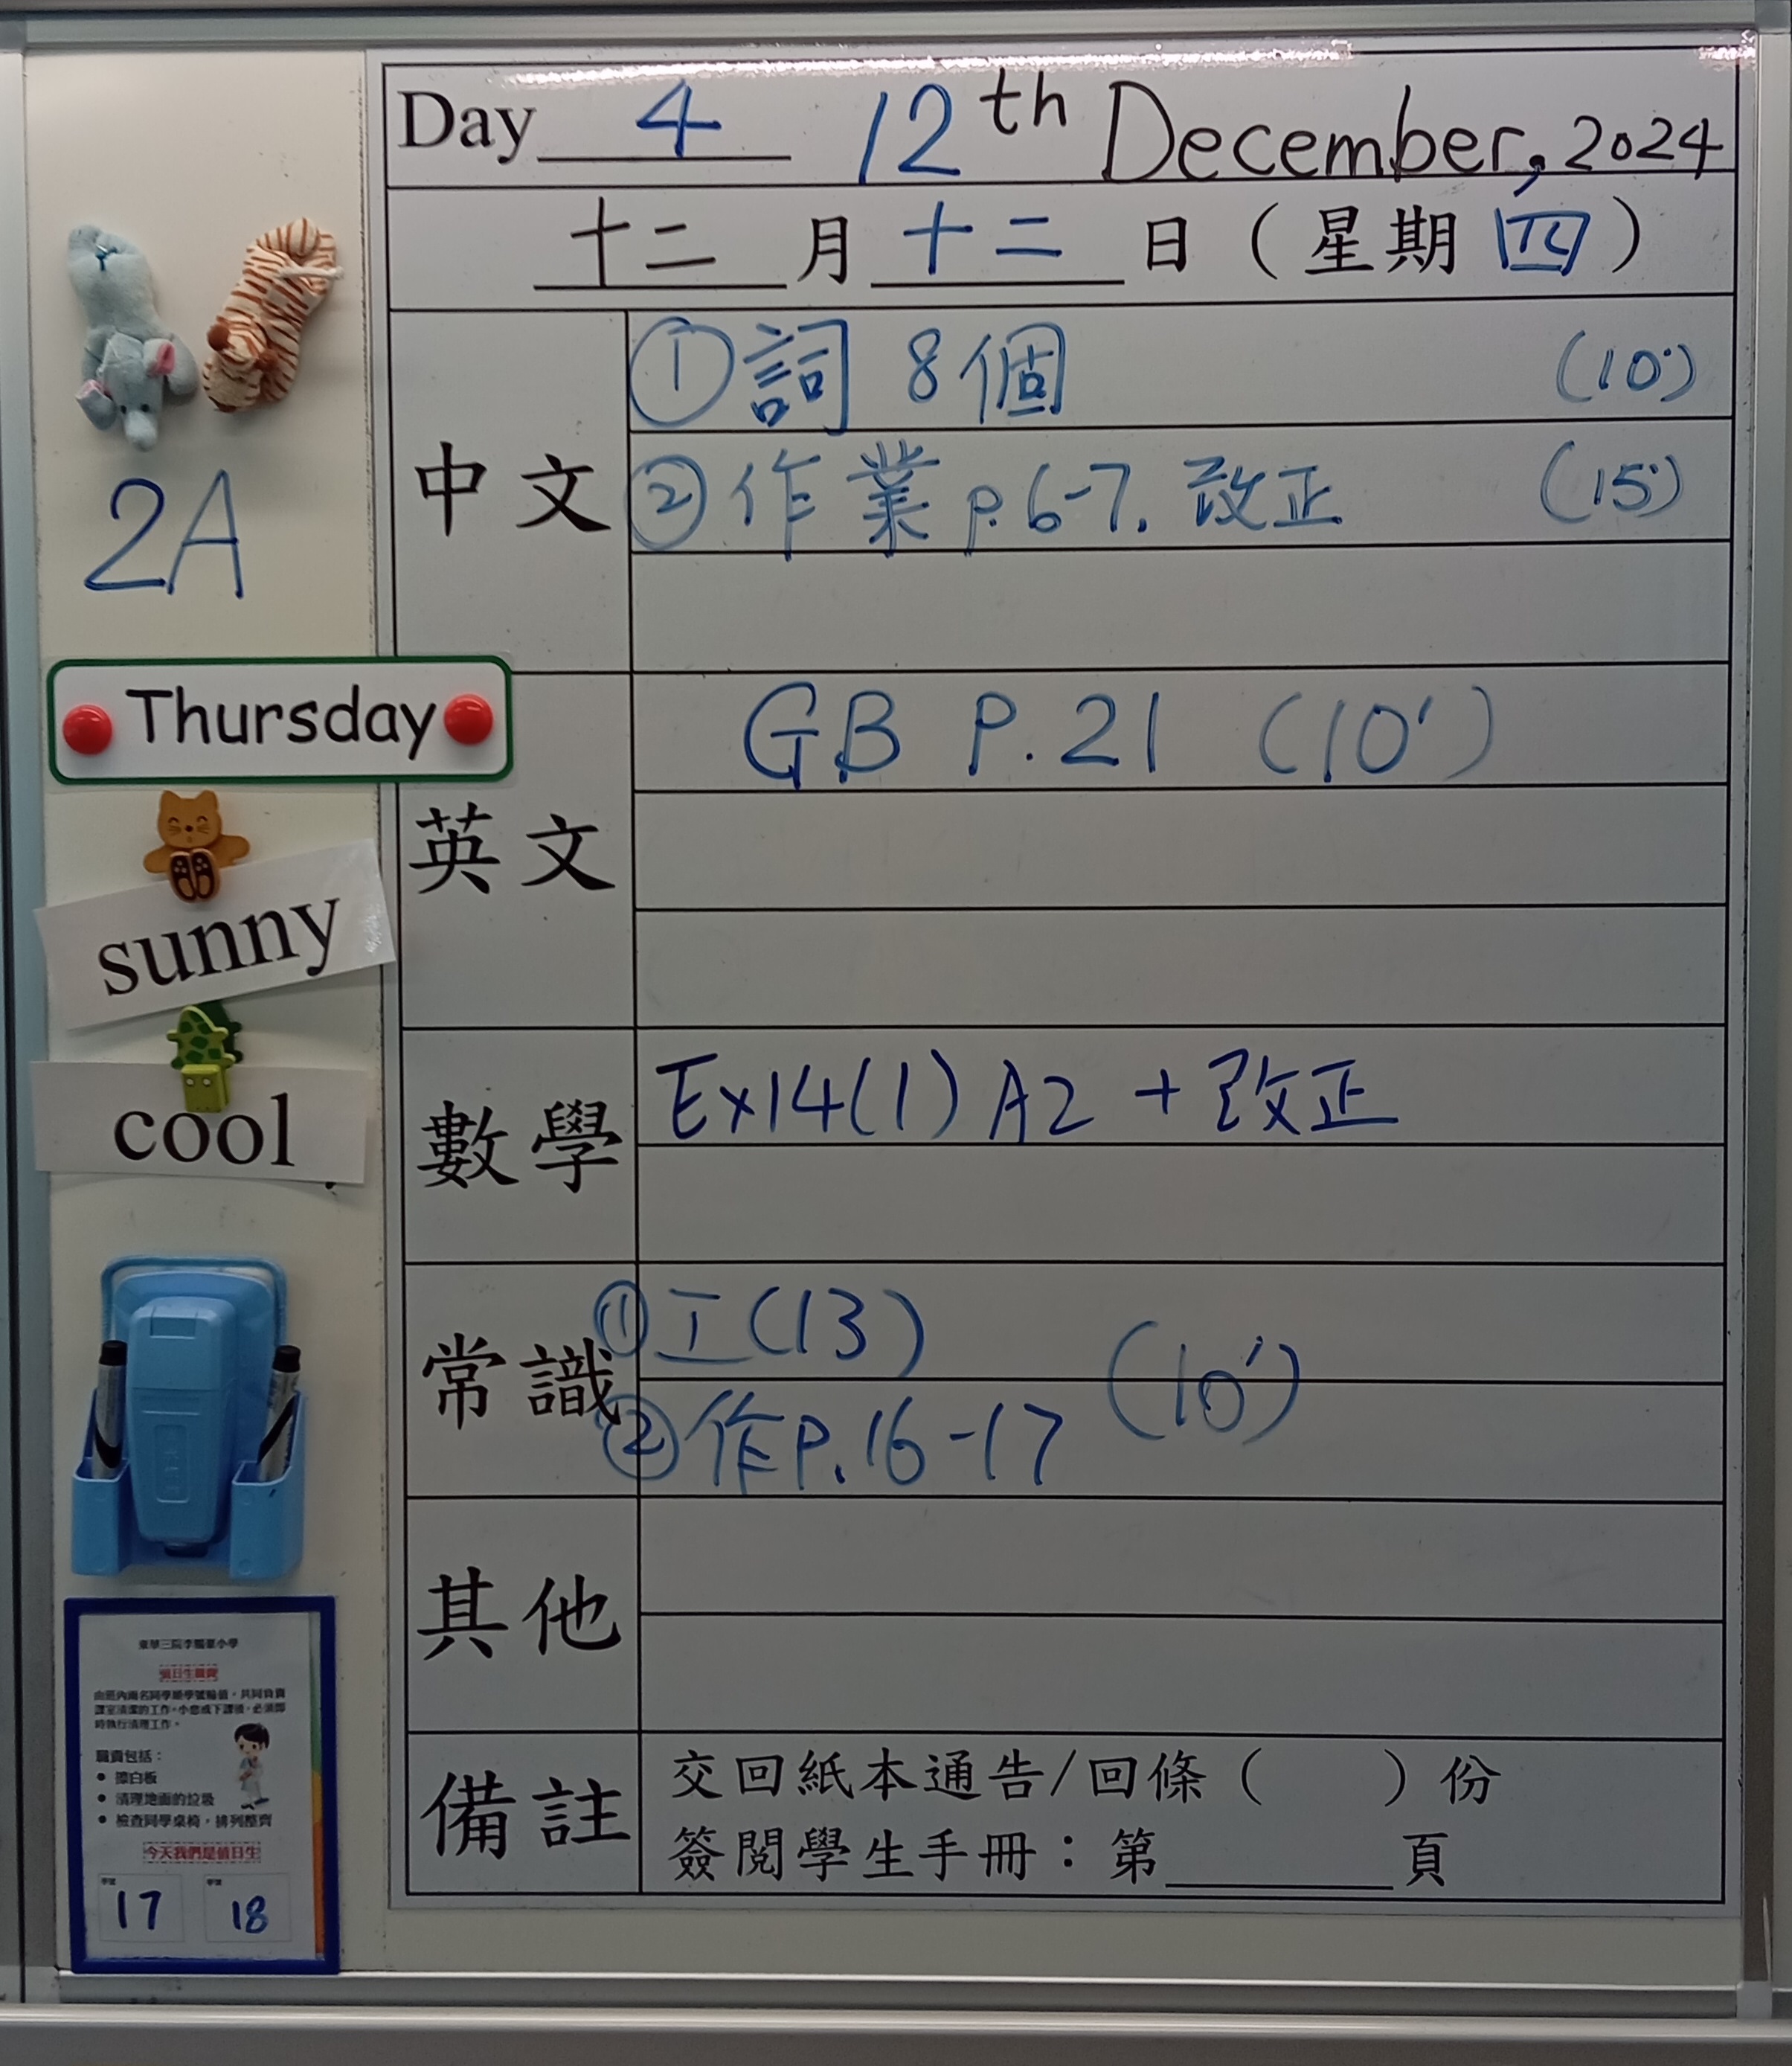 Day 4 12th December, 2024
十二月十二日（星期四）
中文
①詞 8個 (10')
②作業p.6-7. 改正 (15')
2A
Thursday
英文
GB P.21 (10')
sunny
cool
數學
Ex14(1) A2 + 改正
常識
①工(13)
②作P.16-17 (10')
其他
備註
交回紙本通告/回條（　　）份
簽閱學生手冊：第______頁
值日生職責
由班內兩名同學順學號輪值，共同負責
課室清潔的工作。小息或下課後，必須即
時執行清理工作。
職責包括：
• 擦白板
• 清理地面的垃圾
• 檢查同學桌椅，排列整齊
今天我們是值日生
學號 學號
17 18